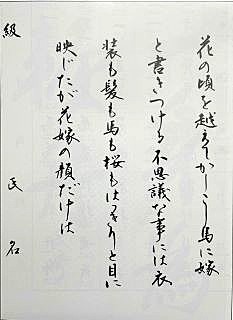 花の頃を越えてかしこし馬に嫁
と書きつける不思議な事には衣
装も髪も馬も桜もはっきりと目に
映じたが花嫁の顔だけは
級
氏名